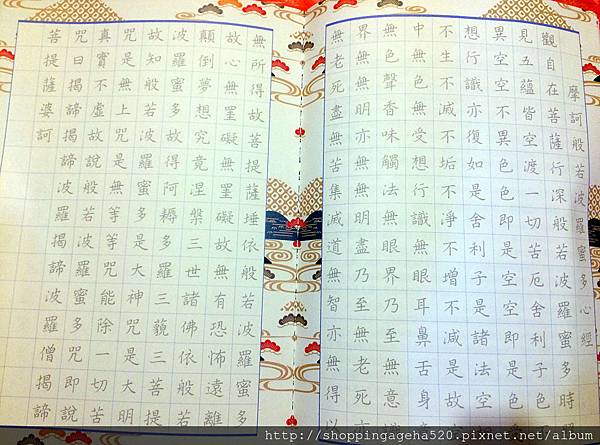 摩訶般若波羅蜜多心經
觀自在菩薩行深般若波羅蜜多時照
見五蘊皆空渡一切苦厄舍利子色
異空空不異色色即是空空即是色
想行識亦復如是舍利子是諸法空
不生不滅不垢不淨不增不減是故
中無色無受想行識無眼耳鼻舌身意
無色聲香味觸法無眼界乃至無意識
界無無明亦無無明盡乃至無老死亦
無老死盡無苦集滅道無智亦無得以
無所得故菩提薩埵依般若波羅蜜多
故心無罣礙無罣礙故無有恐怖遠離
顛倒夢想究竟涅槃三世諸佛依般若
波羅蜜多故得阿耨多羅三藐三菩提
故知般若波羅蜜多是大神咒是大明
咒是無上咒是無等等咒能除一切苦
真實不虛故說般若波羅蜜多咒即說
咒曰揭諦揭諦波羅揭諦波羅僧揭諦
菩提薩婆訶
http://shoppingageha520.pixnet.net/album